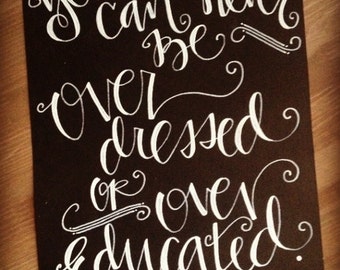 You can never
Be
over
dressed
or over
Educated.